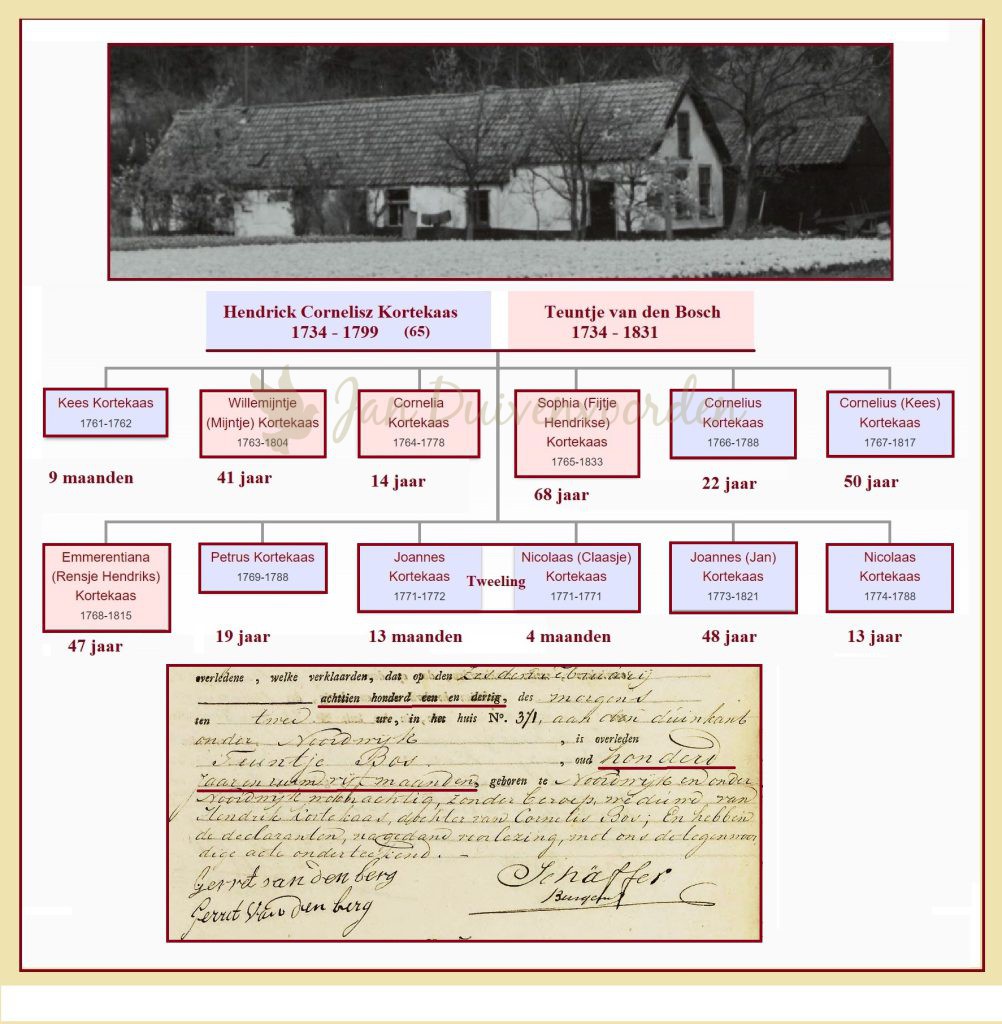 Hendrick Cornelisz Kortekaas
1734 - 1799 (65)
Teuntje van den Bosch
1734 - 1831
Jan Duivenvoorden
Kees Kortekaas
1761-1762
9 maanden
Willemijntje
(Mijntje) Kortekaas
1763-1804
41 jaar
Cornelia
Kortekaas
1764-1778
14 jaar
Sophia (Fijtje
Hendrikse)
Kortekaas
1765-1833
68 jaar
Cornelius
Kortekaas
1766-1788
22 jaar
Cornelius (Kees)
Kortekaas
1767-1817
50 jaar
Emmerentiana
(Rensje Hendriks)
Kortekaas
1768-1815
47 jaar
Petrus Kortekaas
1769-1788
19 jaar
Joannes
Kortekaas
1771-1772
13 maanden
Tweeling
Nicolaas (Claasje)
Kortekaas
1771-1771
4 maanden
Joannes (Jan)
Kortekaas
1773-1821
48 jaar
Nicolaas
Kortekaas
1774-1788
13 jaar
overledene, welke verklaarden, dat op den
achttien honderd een en dertig, des morgens
ten twee ure, in het huis No. 371, aan den duinkant
onder Noordwijk, is overleden
Teuntje Bos, oud honderd
Jaar en ruim vijf maanden, geboren te Noordwijk en onder
Noordwijk woonachtig, zonder beroep, weduwe van
Hendrik Kortekaas, dochter van Cornelis Bos; En hebben
de declaranten, na gedane voorlezing, met ons de tegenwoor
dige acte onderteekend.
Gerret van den berg
Schäffer
Gerret Van den berg